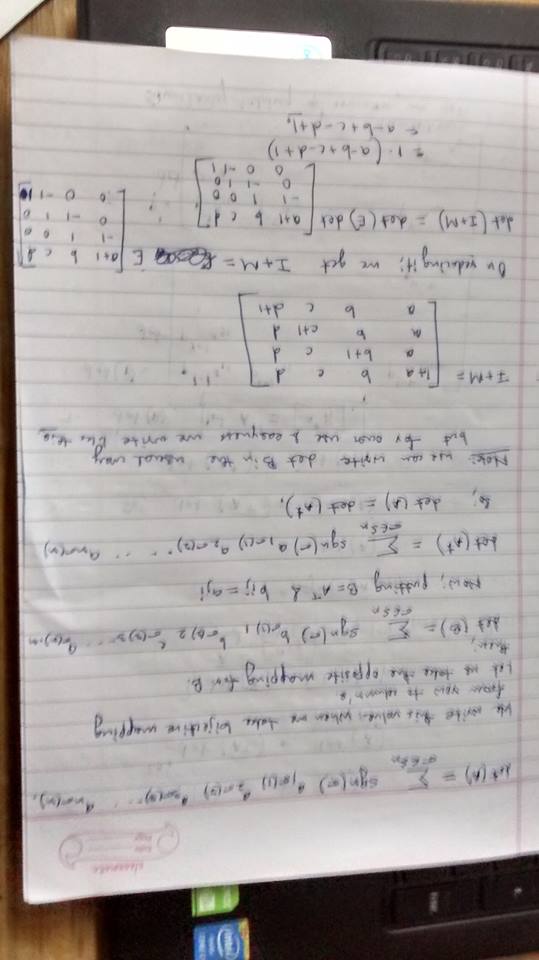 det (A) = ∑σ∈Sn sgn (σ) a1σ(1) a2σ(2) a3σ(3) ... anσ(n).
We write this when we take bijective mapping
from row to column's.
Let us take the opposite mapping for B.
then;
det (B) = ∑σ∈Sn sgn (σ) bσ(1)1 bσ(2)2 bσ(3)3 ... bσ(n)n
Now; putting B = Aᵀ & bij = aji
det (Aᵀ) = ∑σ∈Sn sgn (σ) a1σ(1) a2σ(2) ... anσ(n)
So, det (A) = det (Aᵀ).
Note: we can write det B in the usual way
but for our use & easyness we write like this.
I+M = [ 1+a b c d
a b+1 c d
a b c+1 d
a b c d+1 ]
On reducing it; we get I+M = E [ a+1 b c d
-1 1 0 0
0 -1 1 0
0 0 -1 1 ]
det (I+M) = det (E) det [ a+1 b c d
-1 1 0 0
0 -1 1 0
0 0 -1 1 ]
= 1. (a-b+c-d+1)
= a-b+c-d+1.
classmate
Date
Page
intel